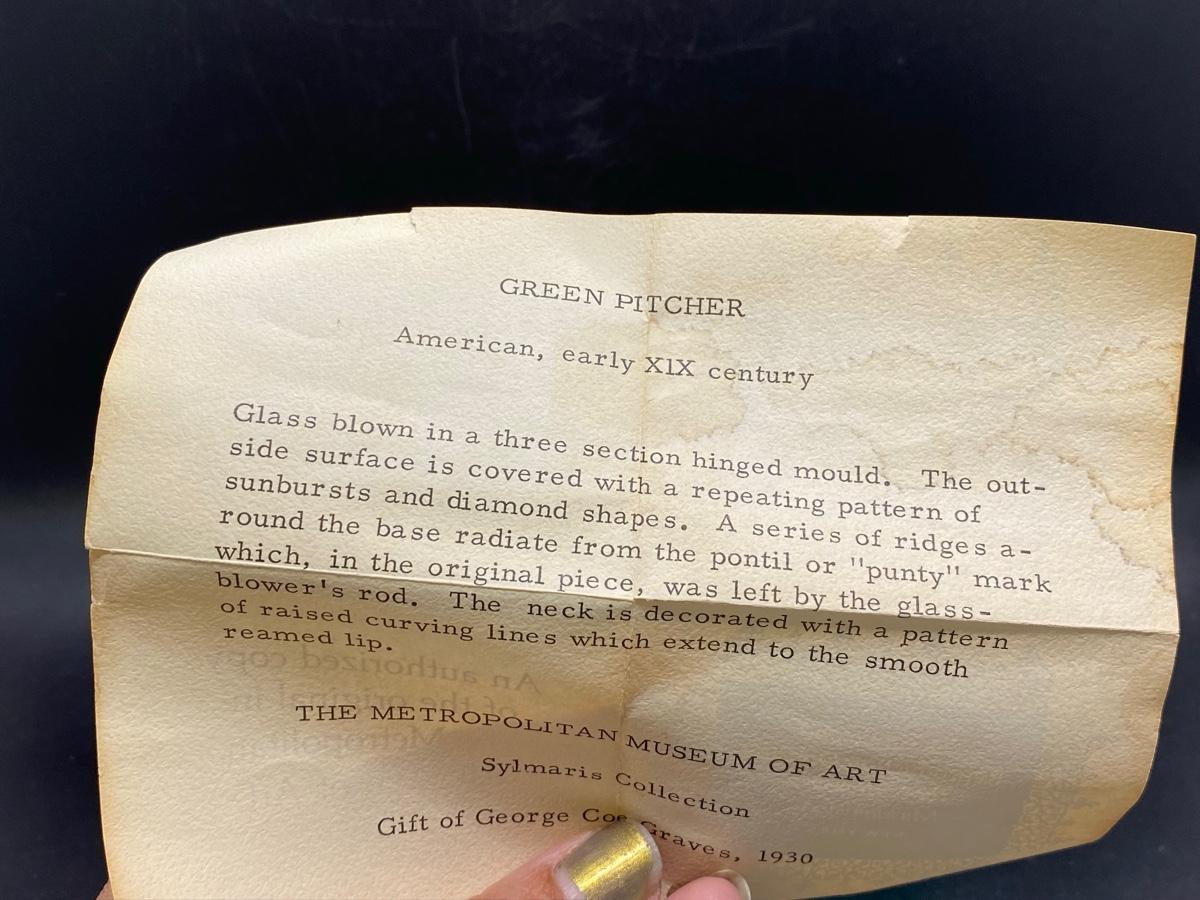 GREEN PITCHER
American, early X1X century
Glass blown in a three section hinged mould. The out-
side surface is covered with a repeating pattern of
sunbursts and diamond shapes. A series of ridges a-
round the base radiate from the pontil or "punty" mark
which, in the original piece, was left by the glass-
blower's rod. The neck is decorated with a pattern
of raised curving lines which extend to the smooth
reamed lip.
An authorized
of the original
Metropolitan
THE METROPOLITAN MUSEUM OF ART
Sylmaris Collection
Gift of George Coe Graves, 1930